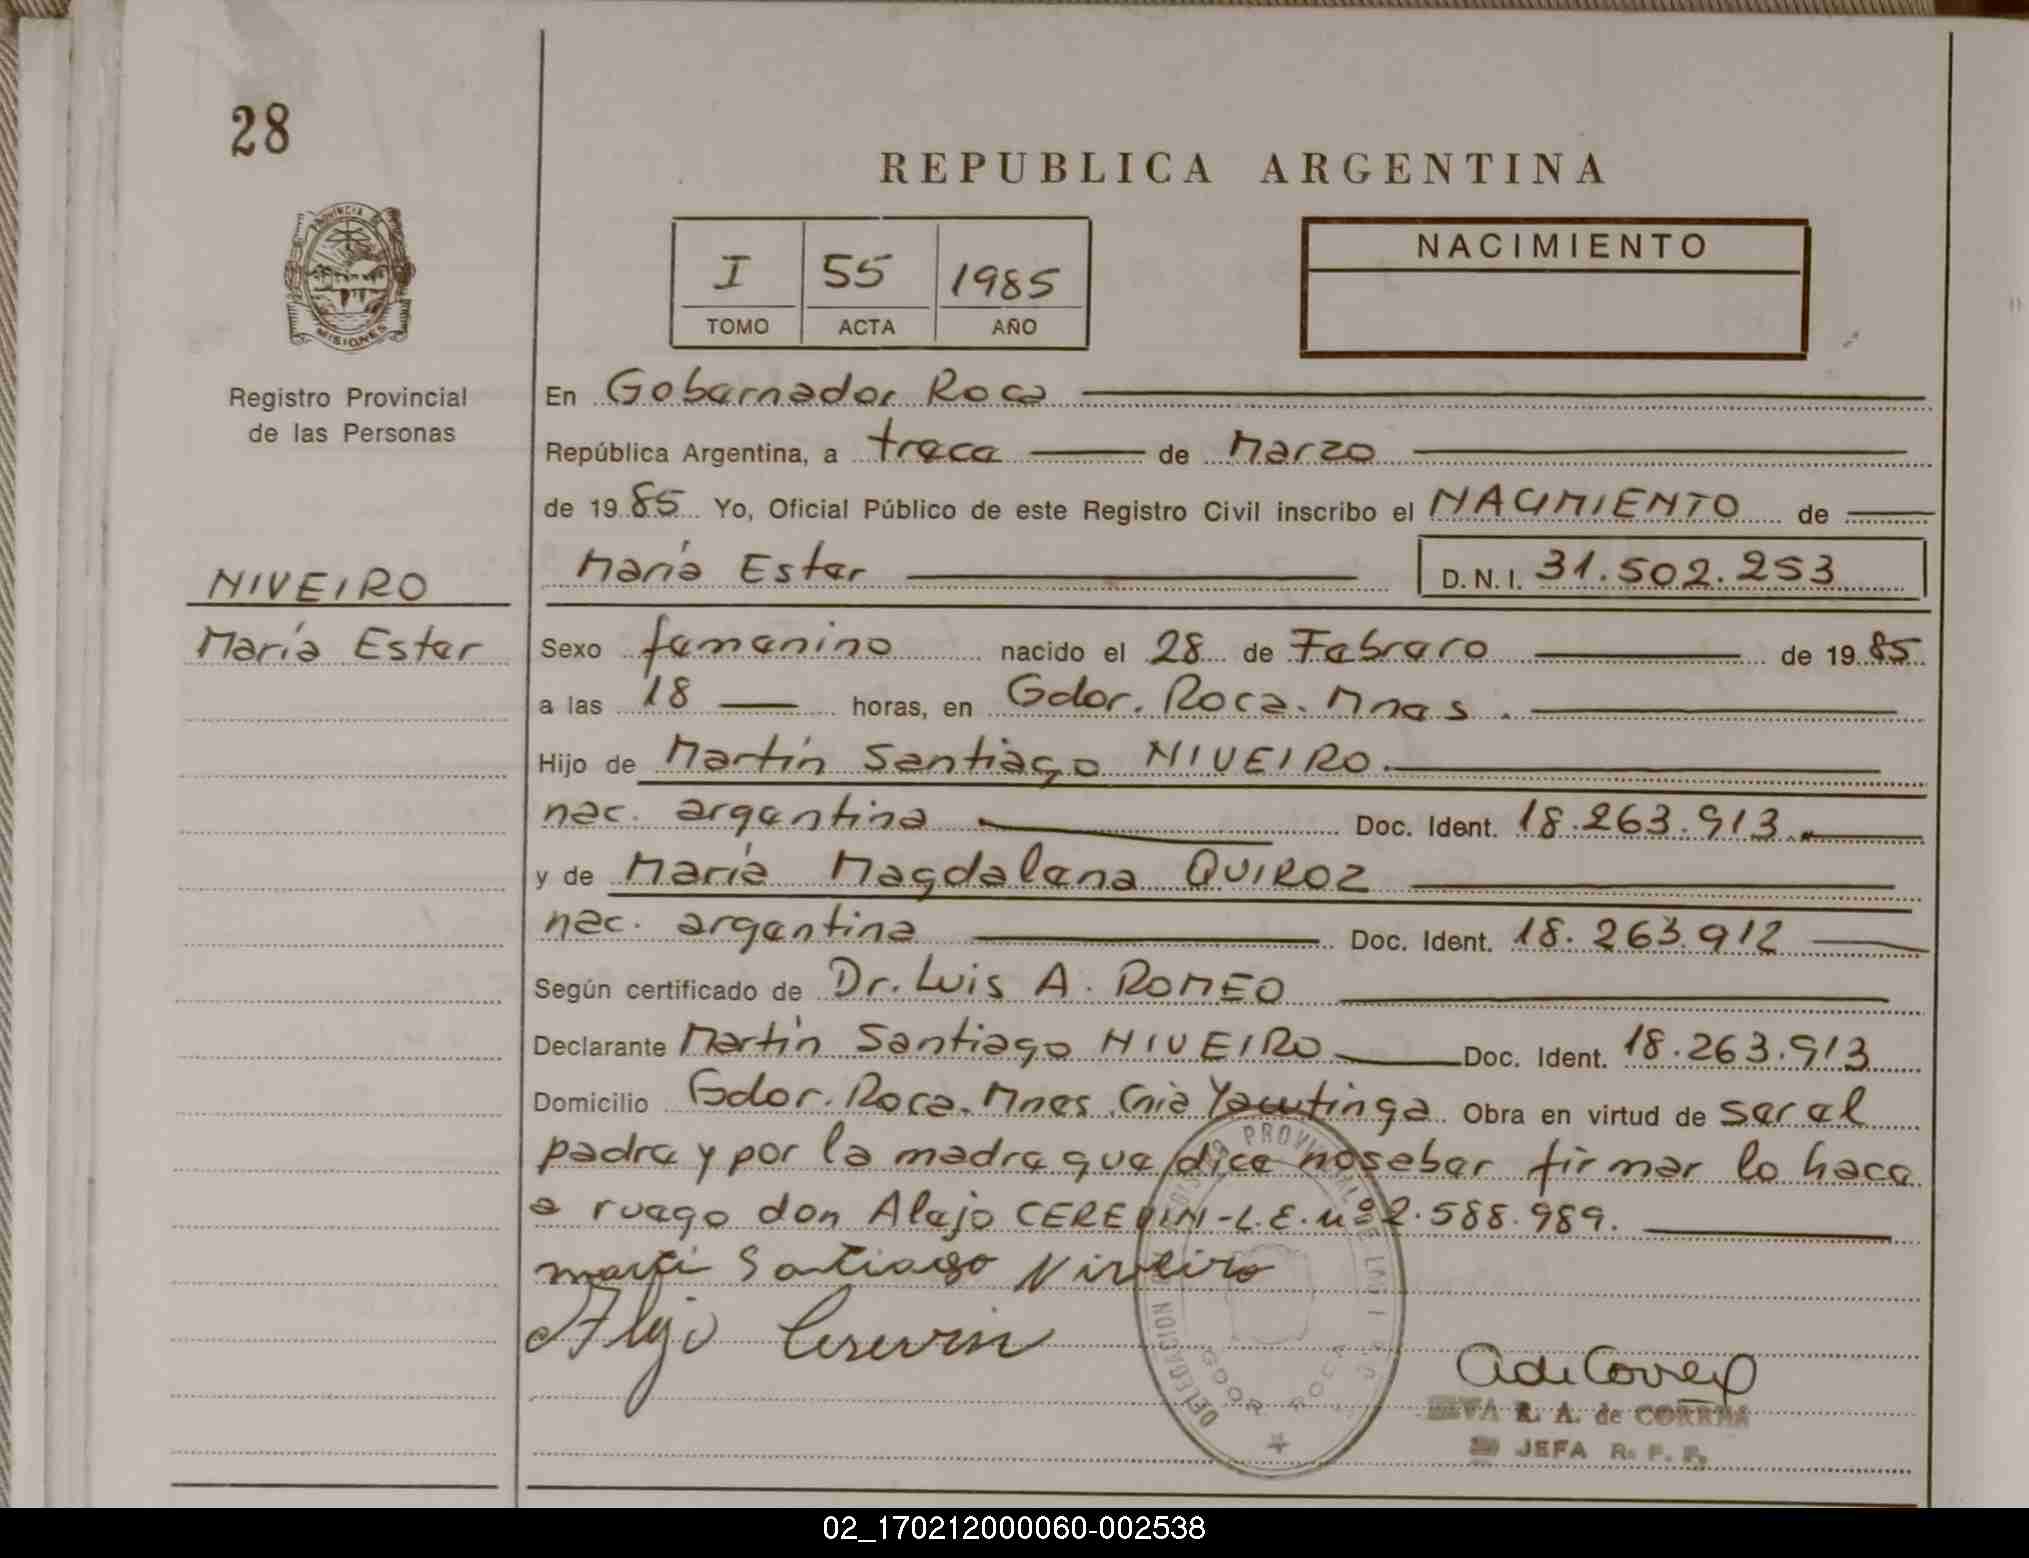 28
REPUBLICA ARGENTINA
I 55 1985
TOMO ACTA AÑO
NACIMIENTO
PROVINCIA DE
MISIONES
Registro Provincial
de las Personas
NIVEIRO
María Ester
En Gobernador Roca
República Argentina, a trece de Marzo
de 1985 Yo, Oficial Público de este Registro Civil inscribo el NACIMIENTO de
María Ester D.N.I. 31.502.253
Sexo femenino nacido el 28 de Febrero de 1985
a las 18 horas, en Gdor. Roca. Mnes.
Hijo de Martín Santiago NIVEIRO.
nac. argentina Doc. Ident. 18.263.913.
y de María Magdalena QUIROZ
nac. argentina Doc. Ident. 18.263.912
Según certificado de Dr. Luis A. ROMEO
Declarante Martín Santiago NIVEIRO Doc. Ident. 18.263.913
Domicilio Gdor. Roca. Mnes. Cnia Yacutinga Obra en virtud de ser el
padre y por la madre que dice no saber firmar lo hace
a ruego don Alejo CEREVIN-L.E. nº 2.588.989.
Santiago Niveiro
Alejo Cerevin
DELEGACION GDOR. ROCA
R. A. de CORREA
JEFA R. P. P.
02_170212000060-002538